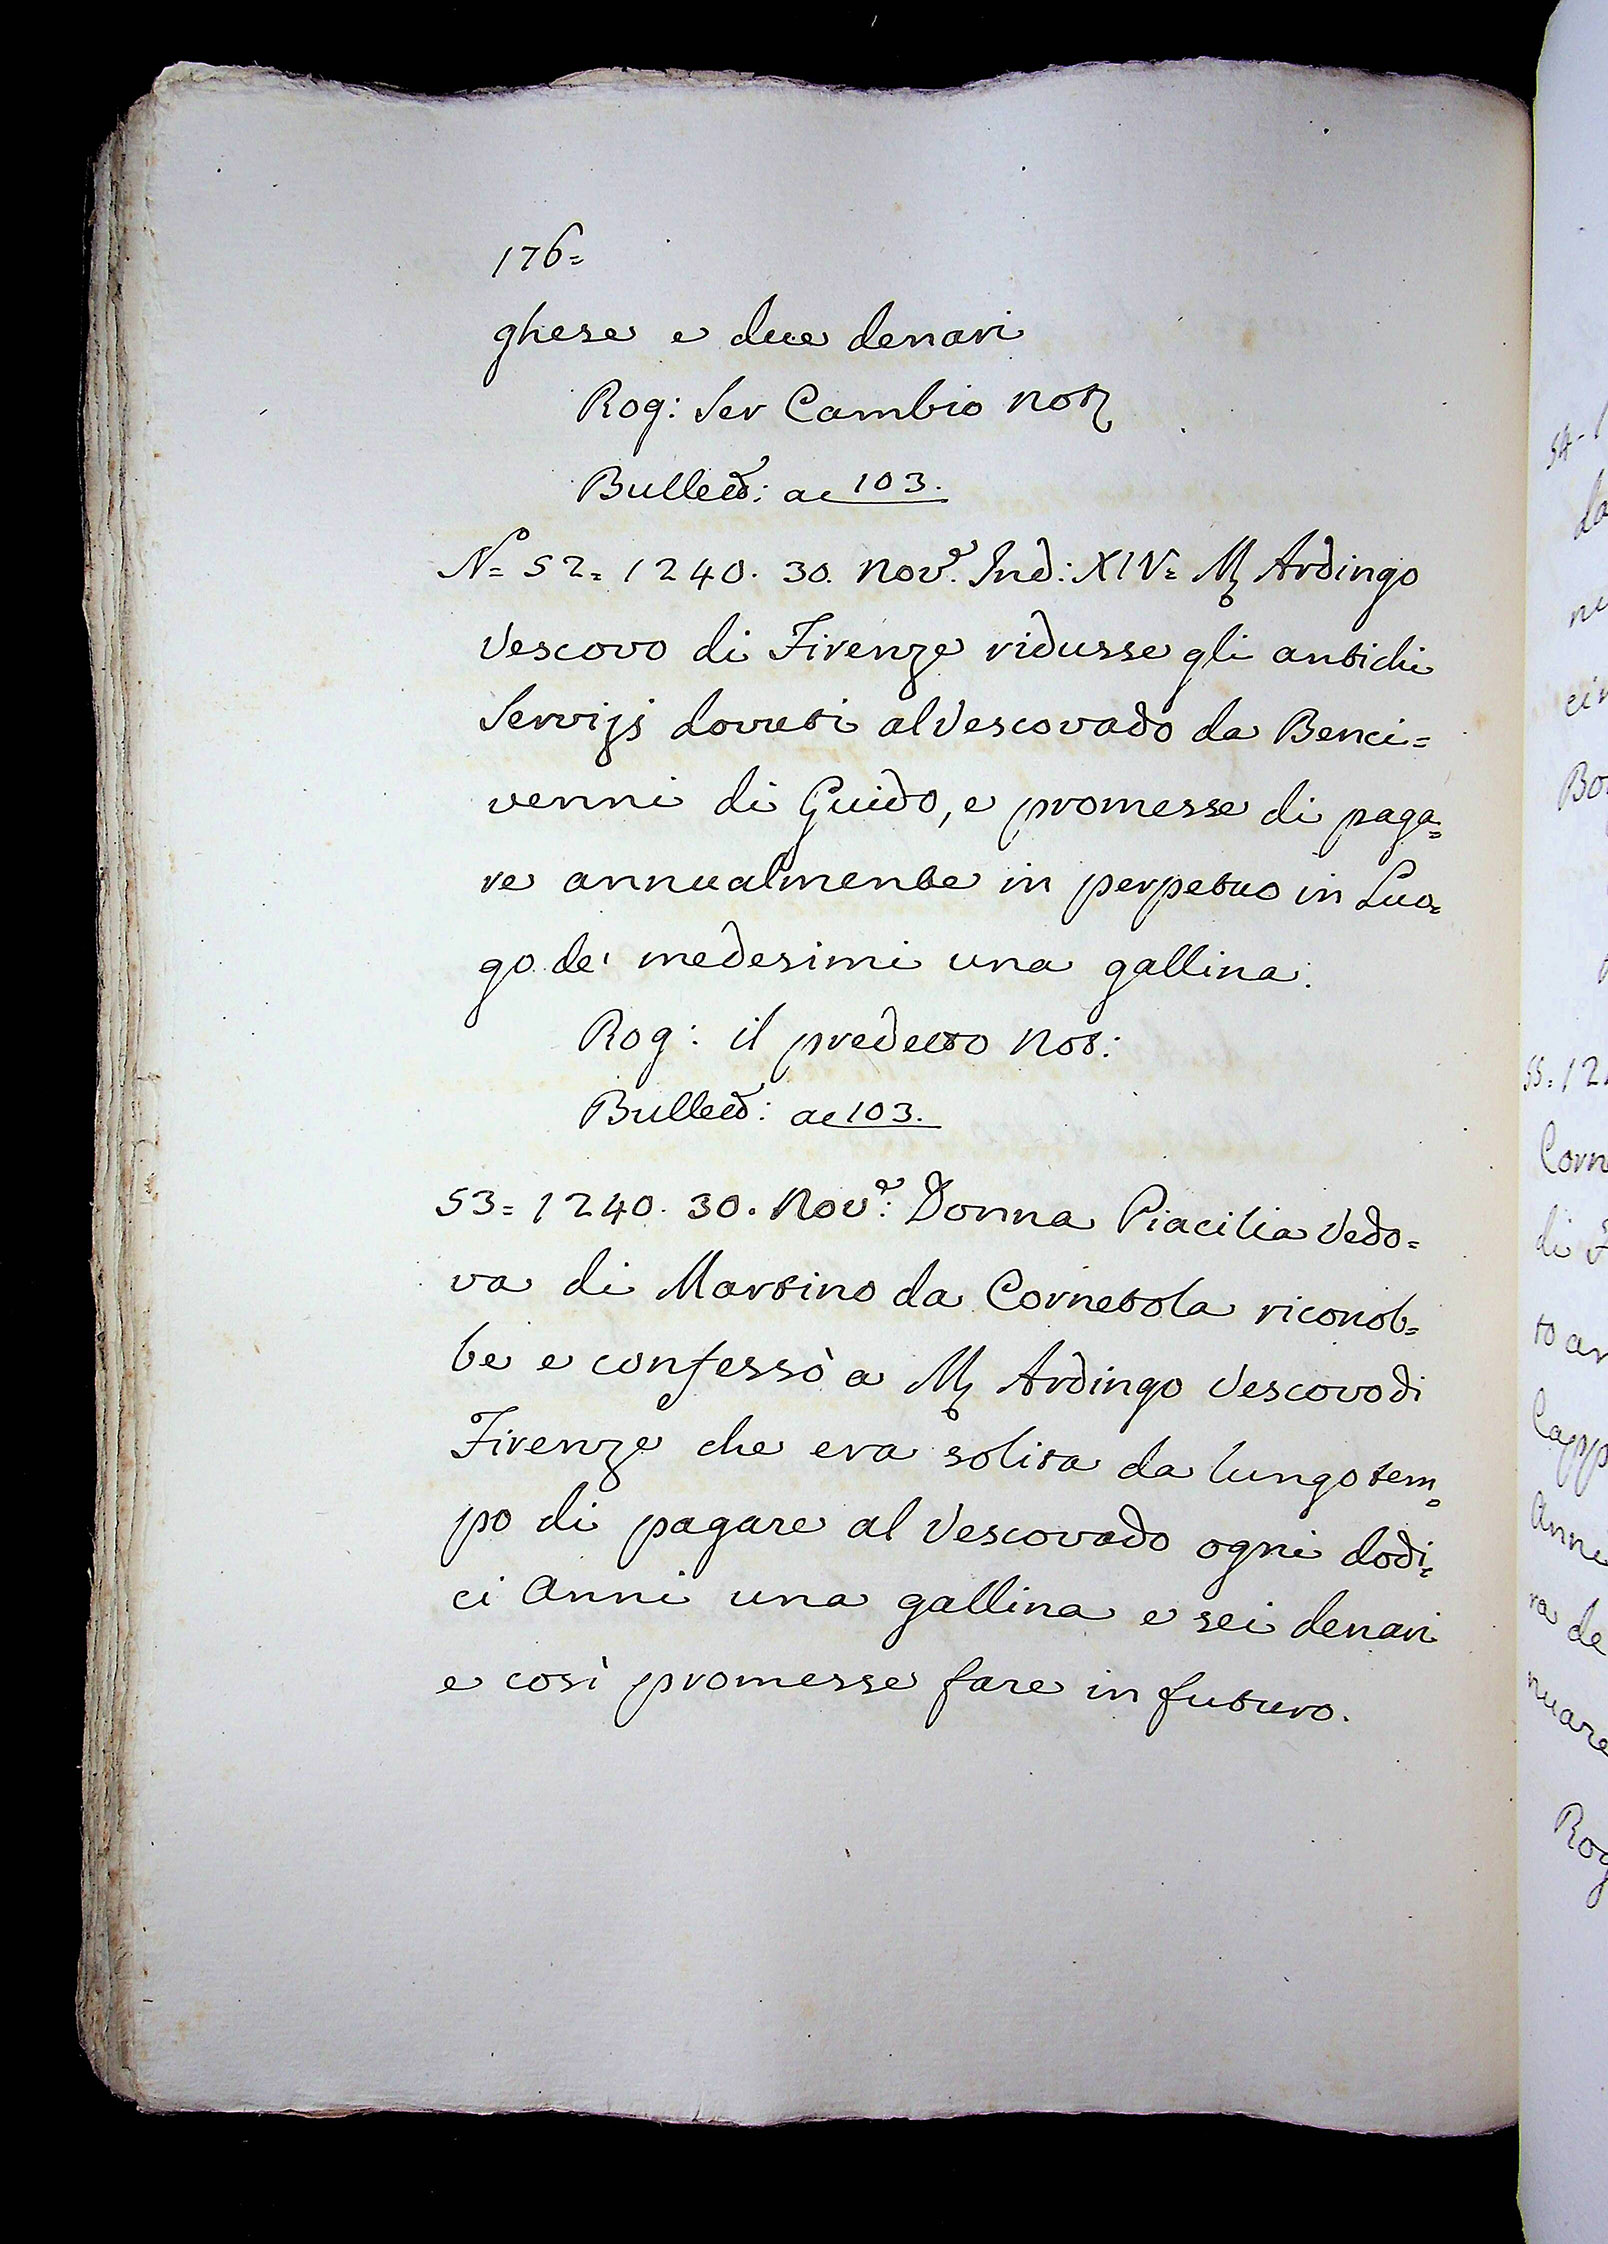 176=
ghese e due denari
Rog: Ser Cambio Not
Bullett: a c 103.
No= 52= 1240. 30. Nov.e Ind: XIV= M Ardingo
Vescovo di Firenze ridusse gli antichi
Servizj dovuti al Vescovado da Benci=
venni di Guido, e promesse di paga=
re annualmente in perpetuo in Luo=
go de' medesimi una gallina.
Rog: il predetto Not:
Bullett: a c 103.
53= 1240. 30. Nov.e: Donna Piacilia Vedo=
va di Martino da Cornetola riconob=
be e confessò a M Ardingo Vescovo di
Firenze che era solita da lungo tem=
po di pagare al Vescovado ogni dodi=
ci Anni una gallina e sei denari
e così promesse fare in futuro.
54-
55=12
Corn
di
to an
Capp
Anni
ra de
nuare
Rog